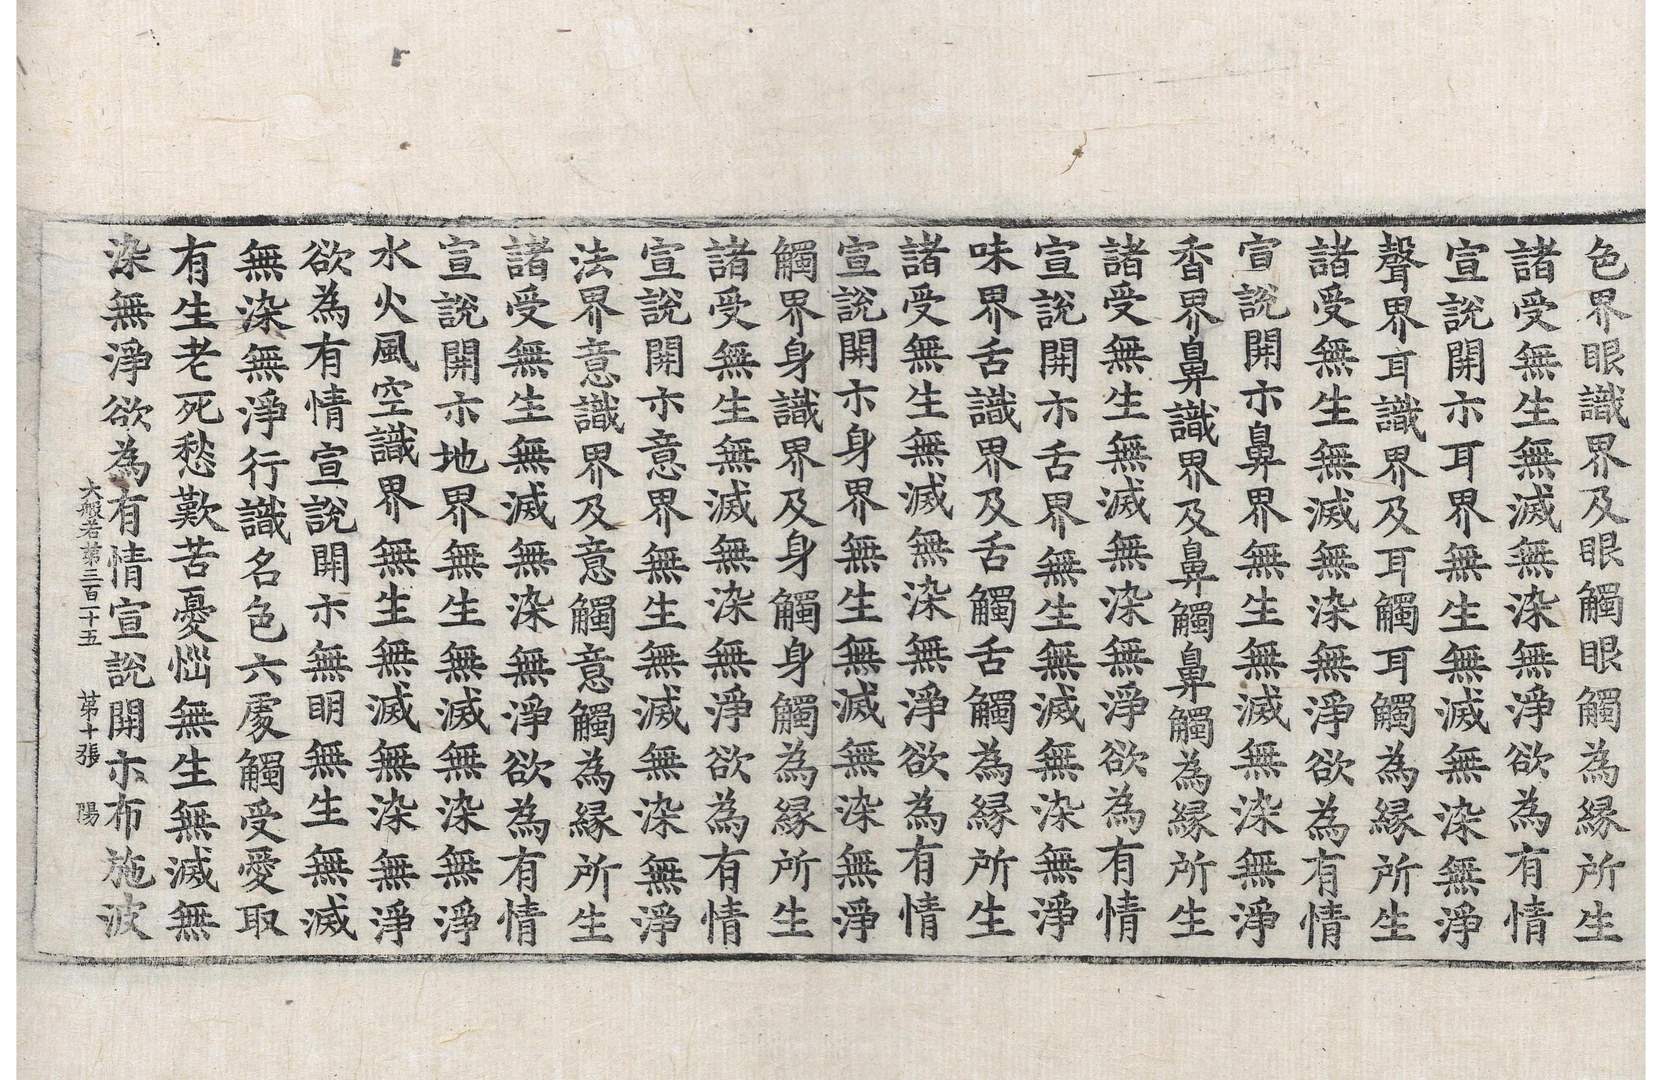 色界眼識界及眼觸眼觸為縁所生
諸受無生無滅無染無淨欲為有情
宣說開示耳界無生無滅無染無淨
聲界耳識界及耳觸耳觸為縁所生
諸受無生無滅無染無淨欲為有情
宣說開示鼻界無生無滅無染無淨
香界鼻識界及鼻觸鼻觸為縁所生
諸受無生無滅無染無淨欲為有情
宣說開示舌界無生無滅無染無淨
味界舌識界及舌觸舌觸為縁所生
諸受無生無滅無染無淨欲為有情
宣說開示身界無生無滅無染無淨
觸界身識界及身觸身觸為縁所生
諸受無生無滅無染無淨欲為有情
宣說開示意界無生無滅無染無淨
法界意識界及意觸意觸為縁所生
諸受無生無滅無染無淨欲為有情
宣說開示地界無生無滅無染無淨
水火風空識界無生無滅無染無淨
欲為有情宣說開示無明無生無滅
無染無淨行識名色六處觸受愛取
有生老死愁歎苦憂惱無生無滅無
染無淨欲為有情宣說開示布施波
大般若第三百二十五 第十張 陽